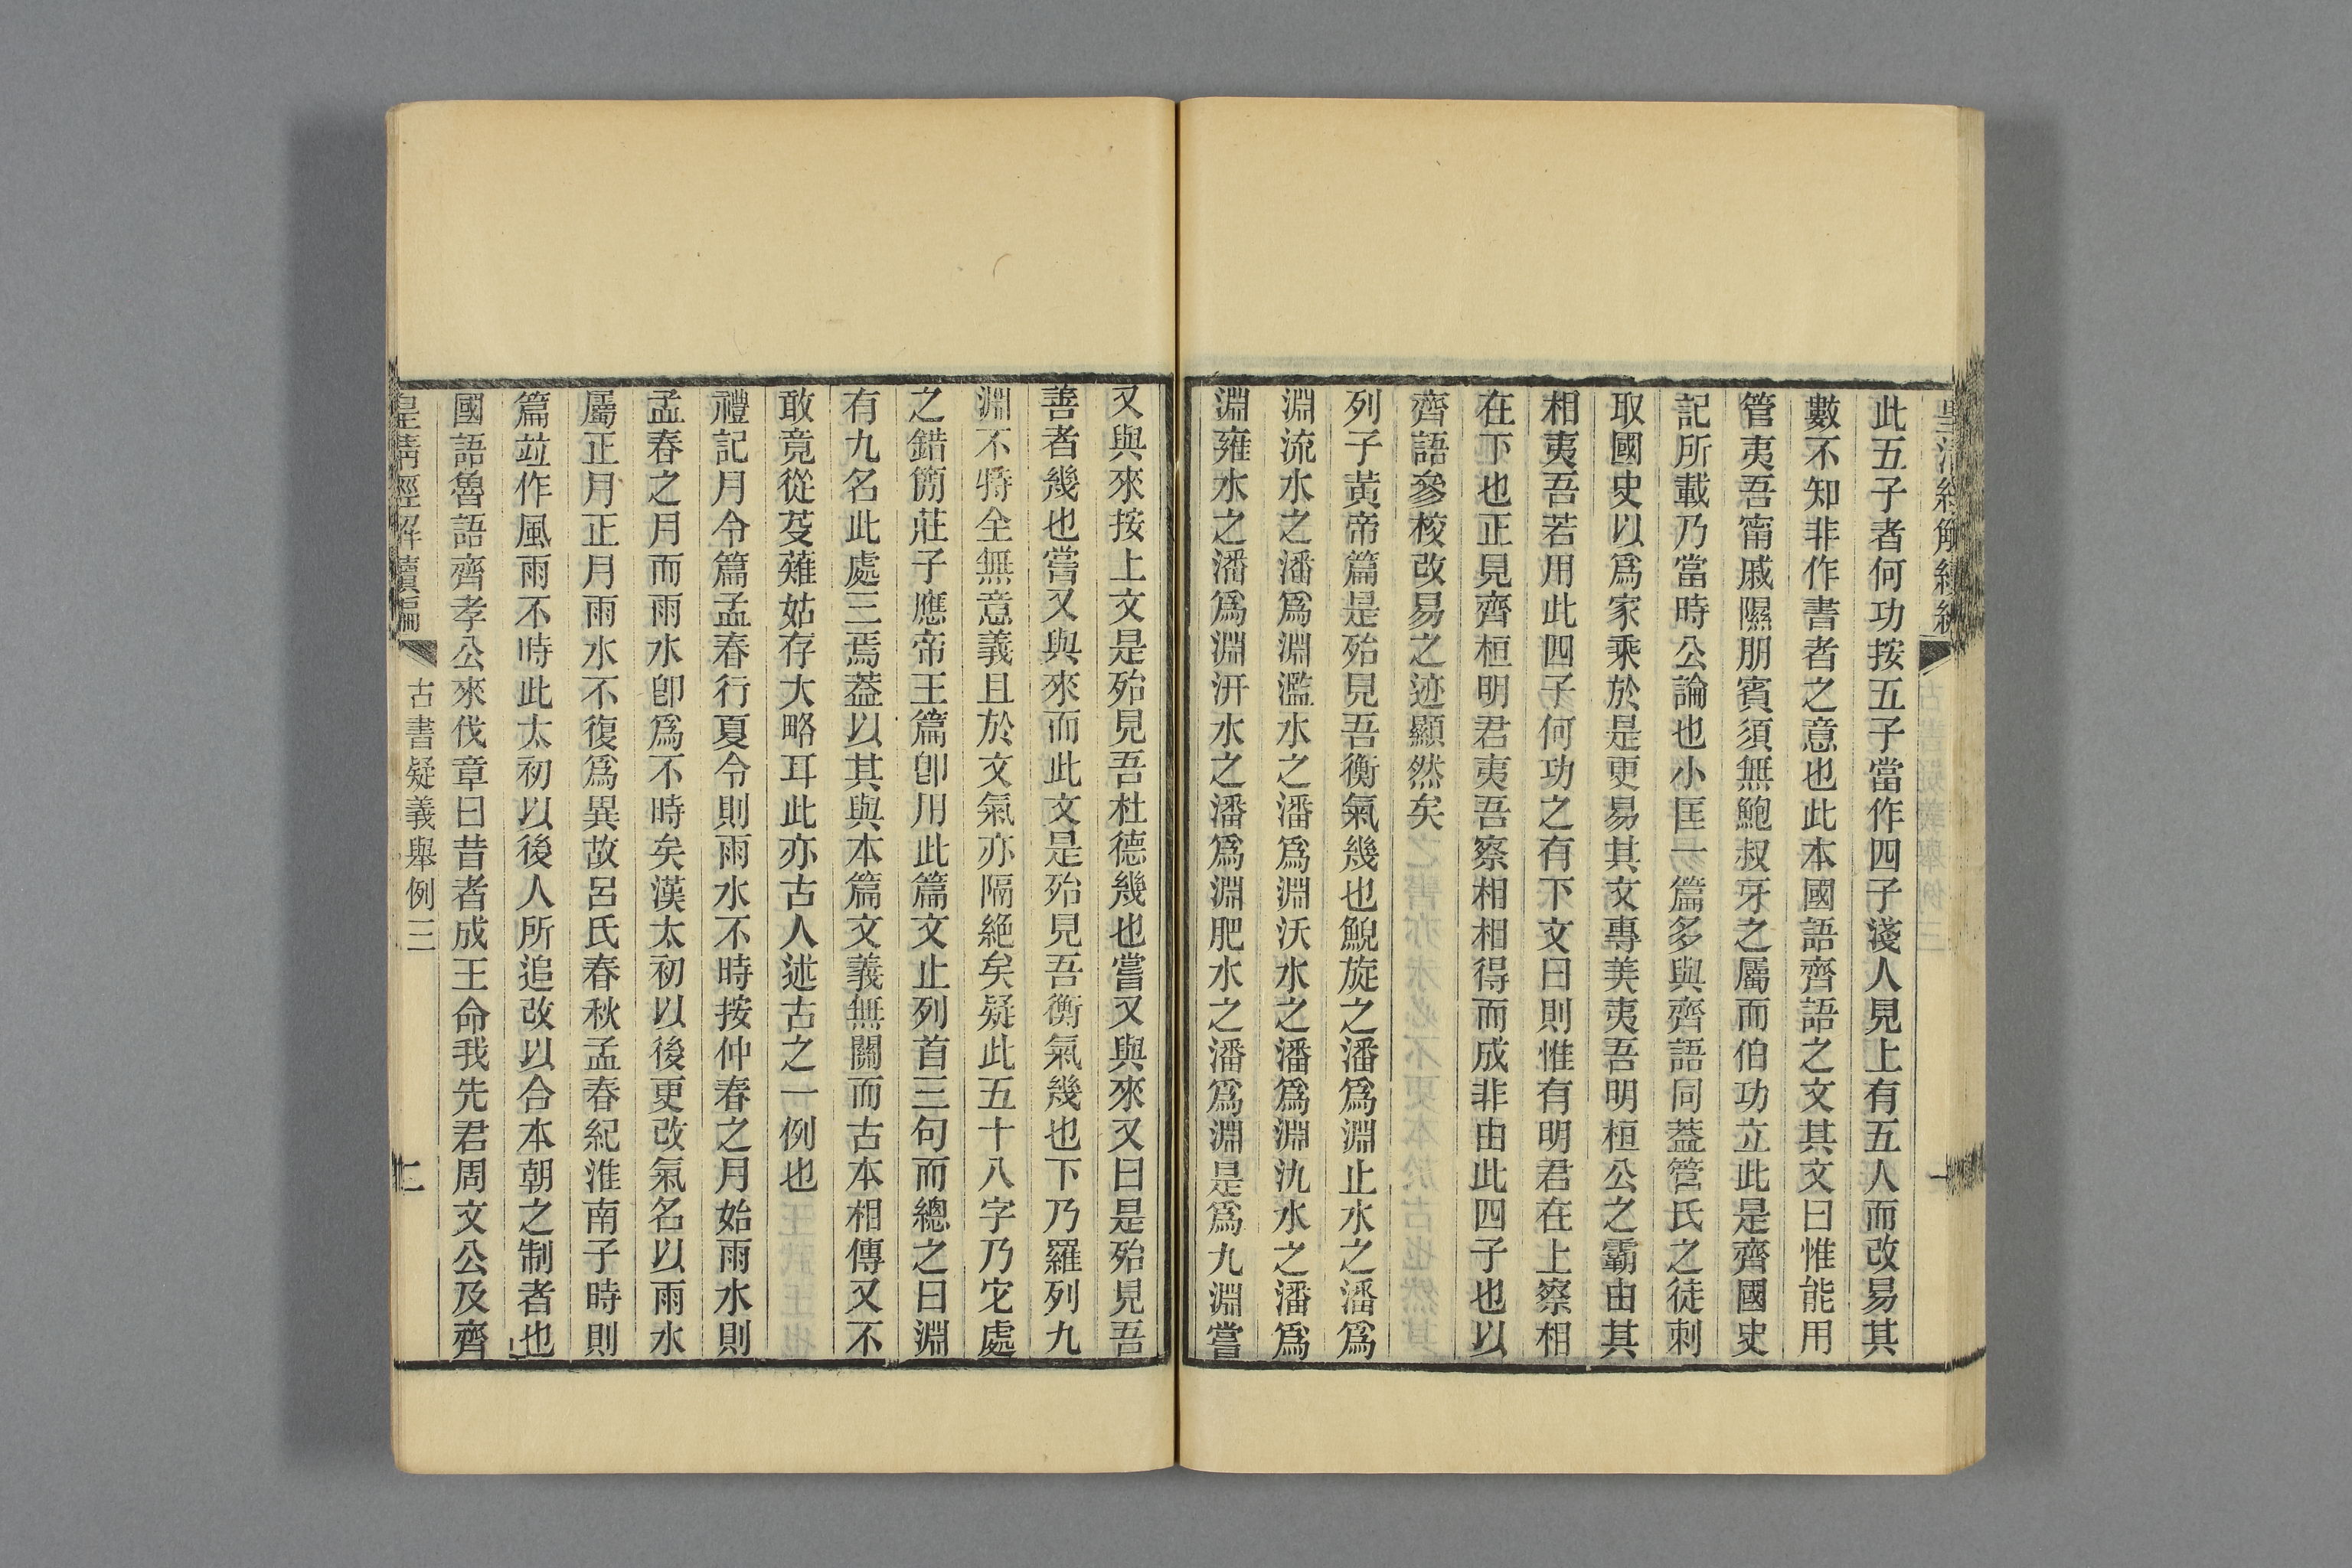 此五子者何功按五子當作四子淺人見上有五人而改易其
數不知非作書者之意也此本國語齊語之文其文曰惟能用
管夷吾甯戚隰朋賓須無鮑叔牙之屬而伯功立此是齊國史
記所載乃當時公論也小匡一篇多與齊語同葢管氏之徒刺
取國史以爲家乘於是更易其文專美夷吾明桓公之霸由其
相夷吾若用此四子何功之有下文曰則惟有明君在上察相
在下也正見齊桓明君夷吾察相相得而成非由此四子也以
齊語參校改易之迹顯然矣
列子黃帝篇是殆見吾衡氣幾也鯢旋之潘爲淵止水之潘爲
淵流水之潘爲淵濫水之潘爲淵沃水之潘爲淵氿水之潘爲
淵雍水之潘爲淵汧水之潘爲淵肥水之潘爲淵是爲九淵嘗
又與來按上文是殆見吾杜德幾也嘗又與來又曰是殆見吾
善者幾也嘗又與來而此文是殆見吾衡氣幾也下乃羅列九
淵不特全無意義且於文氣亦隔絕矣疑此五十八字乃它處
之錯簡莊子應帝王篇卽用此篇文止列首三句而總之曰淵
有九名此處三焉葢以其與本篇文義無關而古本相傳又不
敢竟從芟薙姑存大略耳此亦古人述古之一例也
禮記月令篇孟春行夏令則雨水不時按仲春之月始雨水則
孟春之月而雨水卽爲不時矣漢太初以後更改氣名以雨水
屬正月正月雨水不復爲異故呂氏春秋孟春紀淮南子時則
篇竝作風雨不時此太初以後人所追改以合本朝之制者也
國語魯語齊孝公來伐章曰昔者成王命我先君周文公及齊
皇淸經解續編
古書疑義舉例三